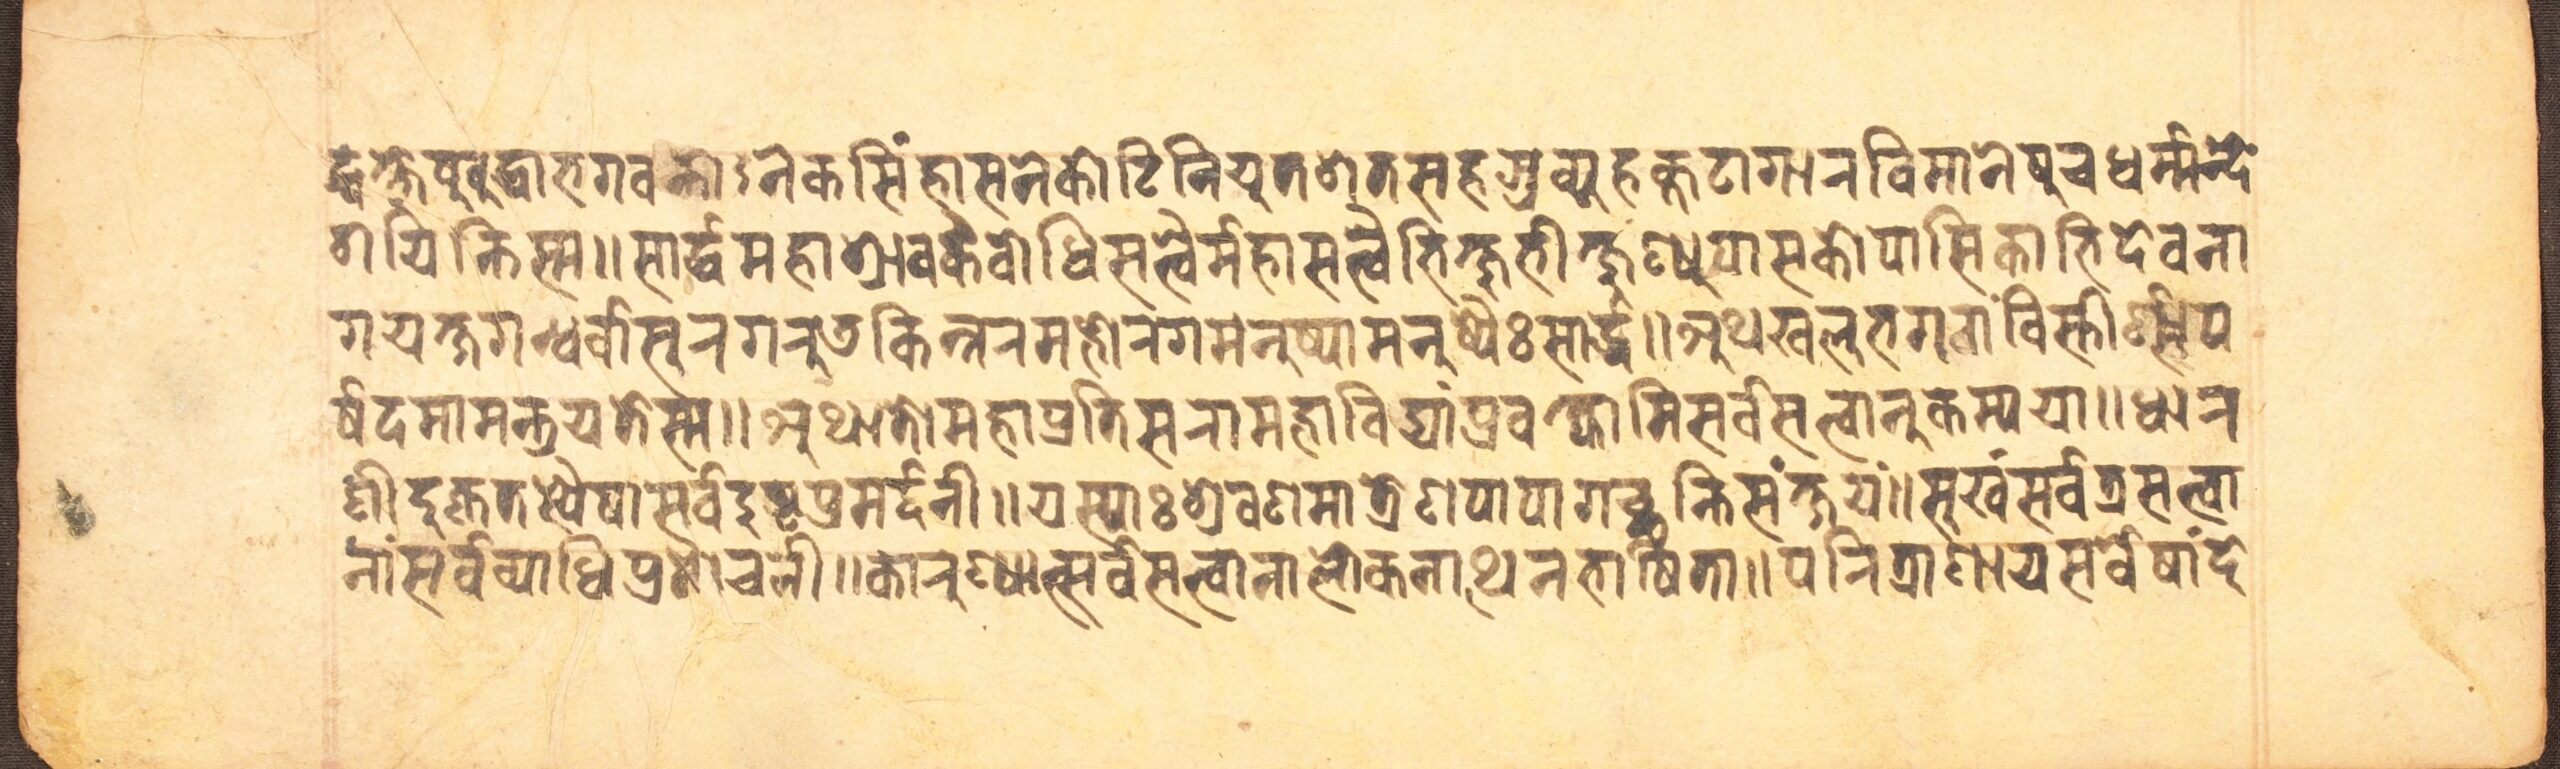 द्धक्षेषुबुद्धाभगवन्तोऽनेकसिंहासनेकोटिनियुतशतसहस्रव्यूहकूटागारविमानेषुचधर्म्मन्दे
शयन्तिस्म॥सार्द्धमहाश्रावकैबोधिसत्वैर्महासत्वैभिक्षुभीक्षुण्युपासकोपासिकाभिदेवना
गयक्षगन्धर्वासुरगरुडकिन्नरमहोरगमनुष्यामनुष्यैःसार्द्धं॥अथखलुभगवांविस्तीर्ण्णप
र्षदमामन्त्रयतेस्म॥अथातोमहाप्रतिसरामहाविद्यांप्रवक्ष्यामिसर्वसत्वानुकम्पया॥धार
णीदुकृतष्यैषासर्वदुष्टप्रमर्दनी॥यस्याःश्रवणमात्रेणपापागच्छन्तिसंक्षयं॥सुखंसर्वत्रसत्वा
नांसर्वव्याधिप्रमोचनी॥कारुण्यात्सर्वसत्वानालोकनाथनभाषिता॥परित्राणायसर्वेषांदे